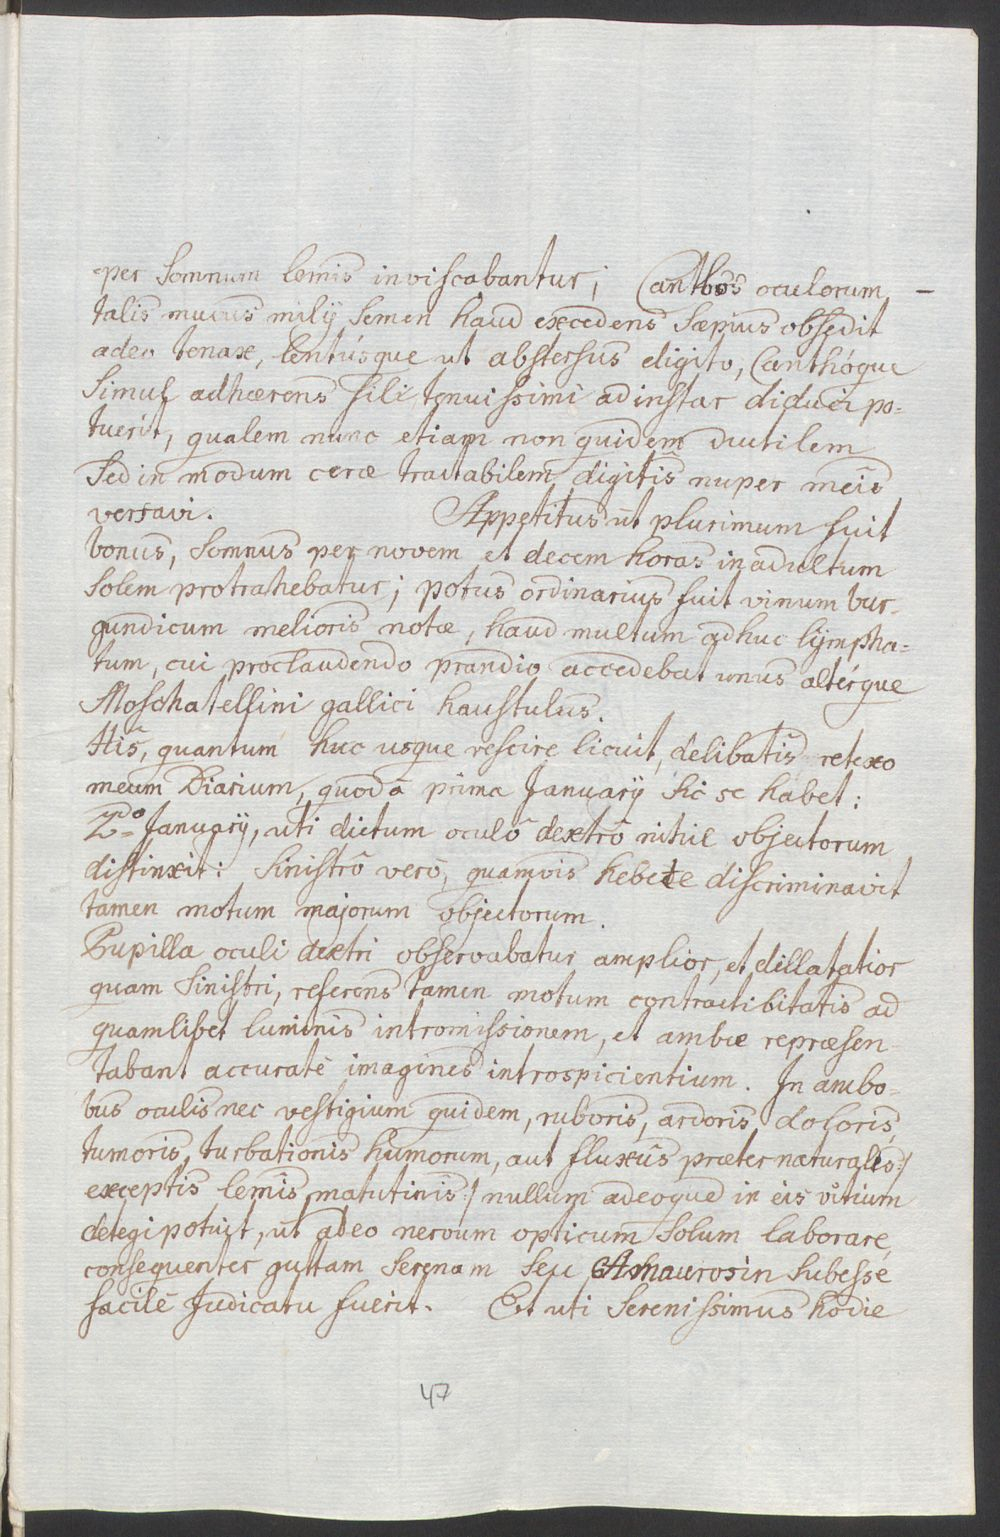 per Somnum lemis inviscabantur; Canthos oculorum –
talis mucus milij Semen haud excedens Sæpius obsedit
adeo tenax, lentúsque ut abstersus digito, Canthóque
Simul adhærens fili tenuissimi ad instar diduci po=
tuerit, qualem nunc etiam non quidem ductilem
Sed in modum ceræ tractabilem digitis nuper meis
versavi. Appetitus ut plurimum fuit
bonus, Somnus per novem et decem horas in adultum
Solem protrahebatur; potus ordinarius fuit vinum bur-
gundicum melioris notæ, haud multum adhuc lÿmpha=
tum, cui proclaudendo prandio accedebat unus altérque
Moschatellini gallici haustulus.
His, quantum huc usque rescire licuit, delibatis retexo
meum Diarium, quod â prima Januarÿ sic se habet:
2do= Januarÿ, uti dictum oculô dextrô nihil objectorum
distinxit: Sinistrô verô, quamvis hebete discriminavit
tamen motum majorum objectorum.
Pupilla oculi dextri observabatur amplior, et dillatatior
quam Sinistri, referens tamen motum contractibitatis ad
quamlibet luminis intromissionem, et ambæ repræsen-
tabant accuratè imagines introspicientium. In ambo-
bus oculis nec vestigium quidem, ruboris, ardoris, doloris,
tumoris, turbationis humorum, aut fluxûs præternaturales:/
exceptis lemis matutinis:/ nullum adeoque in eis vitium
detegi potuit, ut adeo nervum opticum Solum laborare,
consequenter guttam Serenam Seu Amaurosin Subesse
facilè Judicatu fuerit. Et uti Serenissimus hodie
47